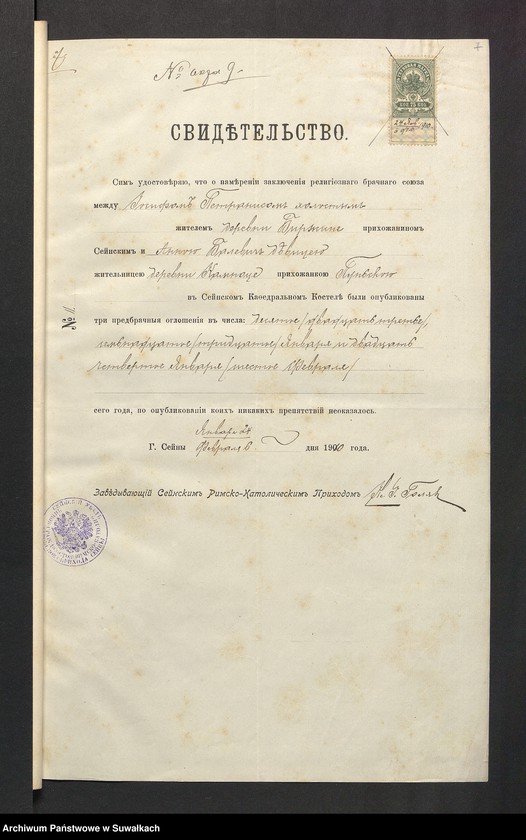 7
№ акта 9
СВИДѢТЕЛЬСТВО.
Симъ удостовѣряю, что о намѣреніи заключенія религіознаго брачнаго союза
между Іосифомъ холостымъ
жителемъ деревни прихожаниномъ
Сейнскимъ и Анною Балевичъ дѣвицею
жительницею деревни прихожанкою
въ Сейнскомъ Каѳедральномъ Костелѣ были опубликованы
№ 11.
три предбрачныя оглошенія въ числа: десятое /двадцать третье/,
семнадцатое /тридцатое/ Января и двадцать
четвертое Января /шестое Февраля/
сего года, по опубликованіи коихъ никакихъ препятствій неоказалось.
Января 24
Г. Сейны Февраля 6 дня 1900 года.
Завѣдывающій Сейнскимъ Римско-Католическимъ Приходомъ
Archiwum Państwowe w Suwałkach